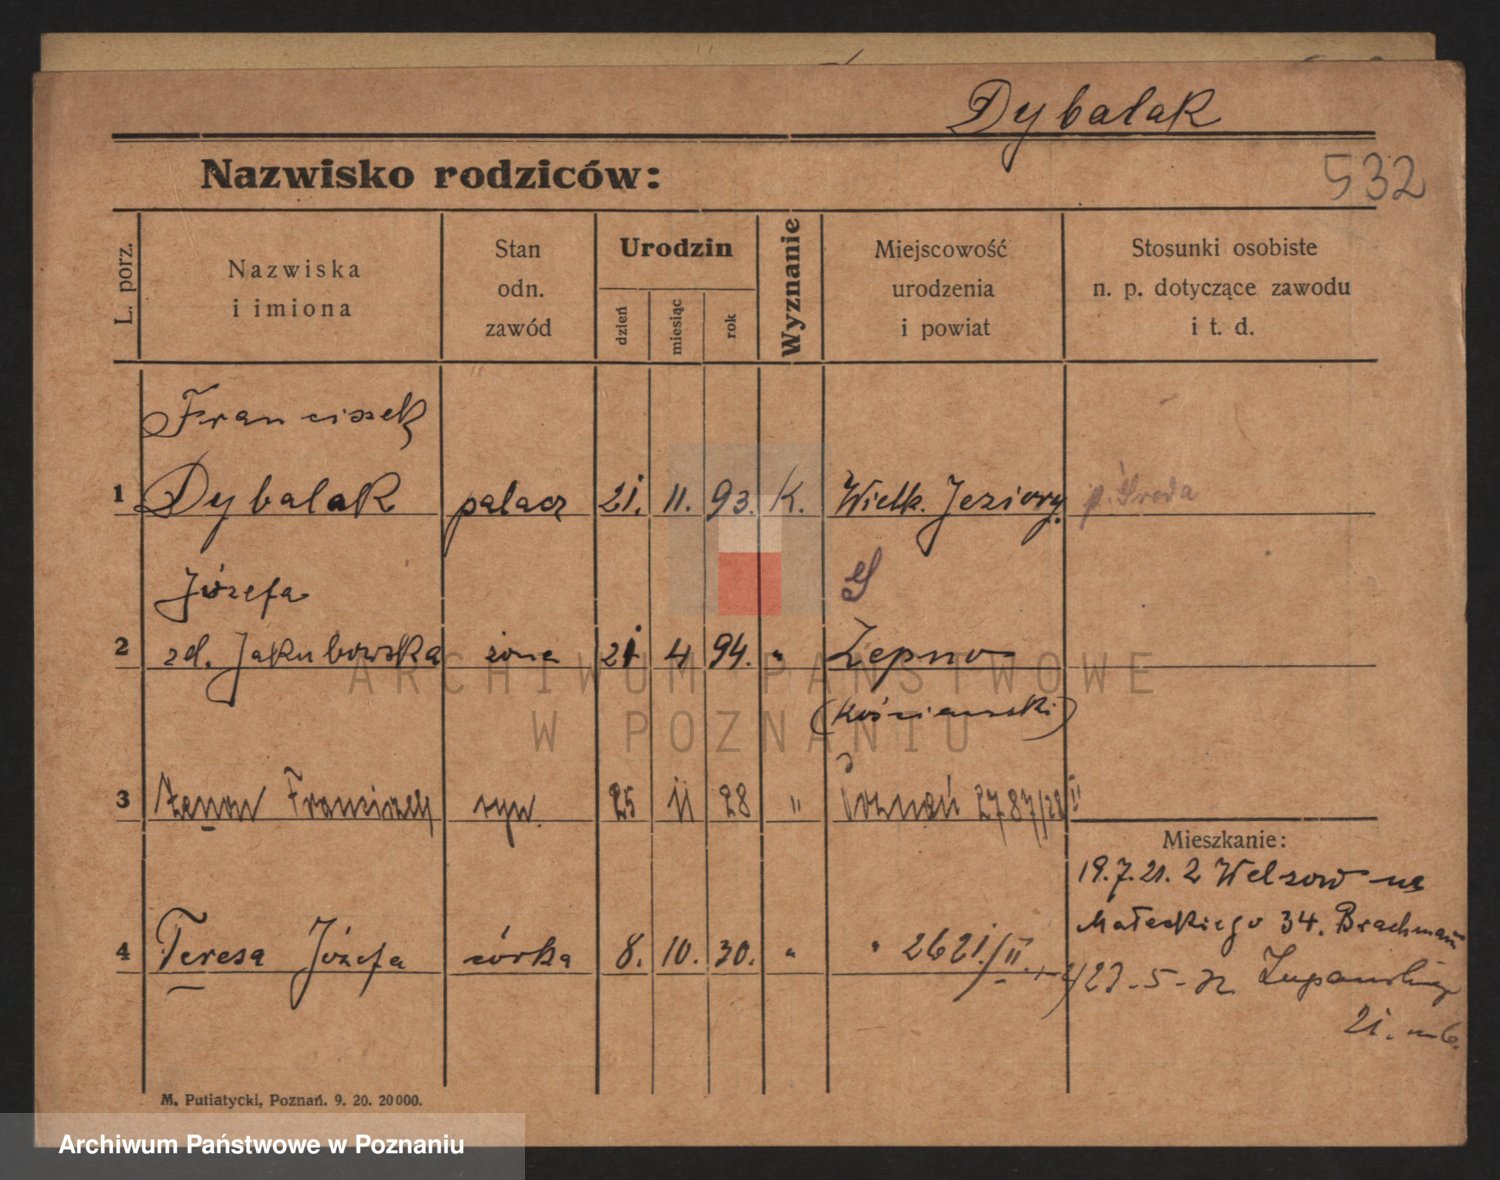 Dybalak
Nazwisko rodziców:
532
L. porz.
Nazwiska
i imiona
Stan
odn.
zawód
Urodzin
dzień
miesiąc
rok
Wyznanie
Miejscowość
urodzenia
i powiat
Stosunki osobiste
n. p. dotyczące zawodu
i t. d.
Franciszek
1 Dybalak palacz 21. 11. 93. K. Wielk. Jeziory. p. Środa
Józefa
2 zd. Jakubowska żona 21 4 94. " Zepno
(Kościański)
3 Zenon Franciszek syn. 25 11 28 " Poznań 2787/28 II
Mieszkanie:
19.7.21. z Welsow na
Małeckiego 34. Brachman
4 Teresa Józefa córka 8. 10. 30. " " 2621/II.
23-5-32 Żupańskiego
21.
M. Putiatycki, Poznań. 9. 20. 20000.
ARCHIWUM PAŃSTWOWE
W POZNANIU
Archiwum Państwowe w Poznaniu